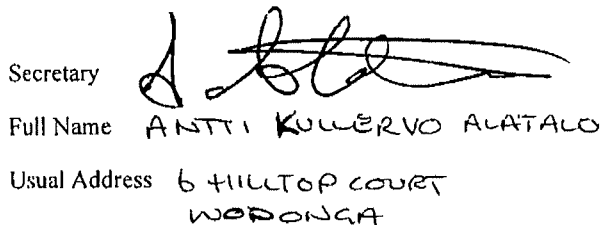 Secretary
Full Name ANTTI KULLERVO ALATALO
Usual Address 6 HILLTOP COURT
WODONGA